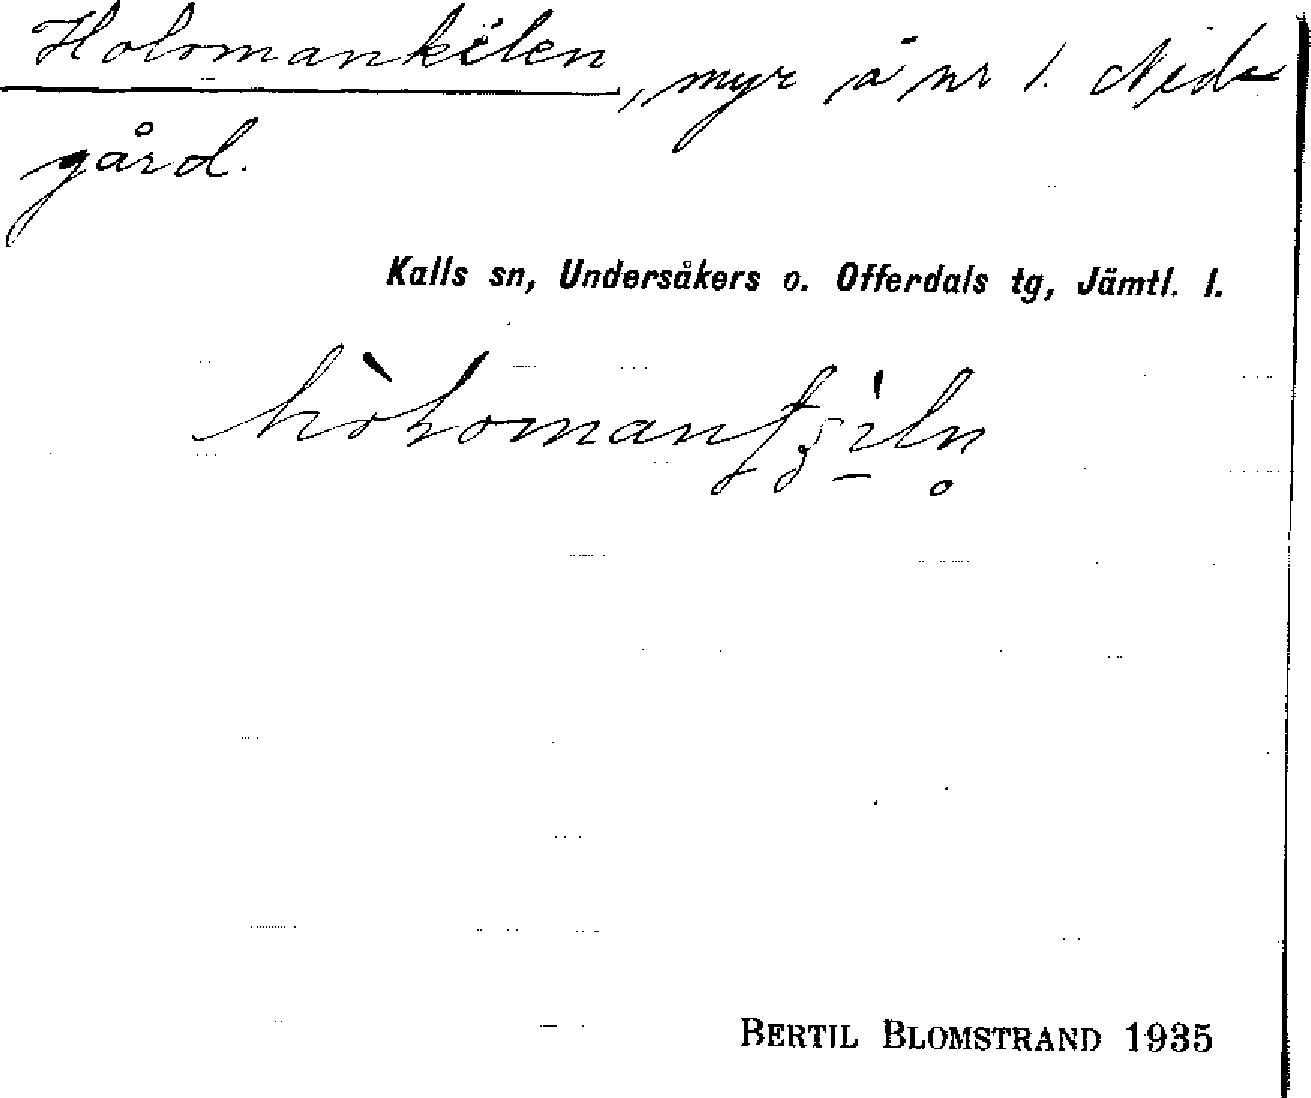 Holomankilen, myr å nr 1. Neds
gård.
Kalls sn, Undersåkers o. Offerdals tg, Jämtl. l.
BERTIL BLOMSTRAND 1935